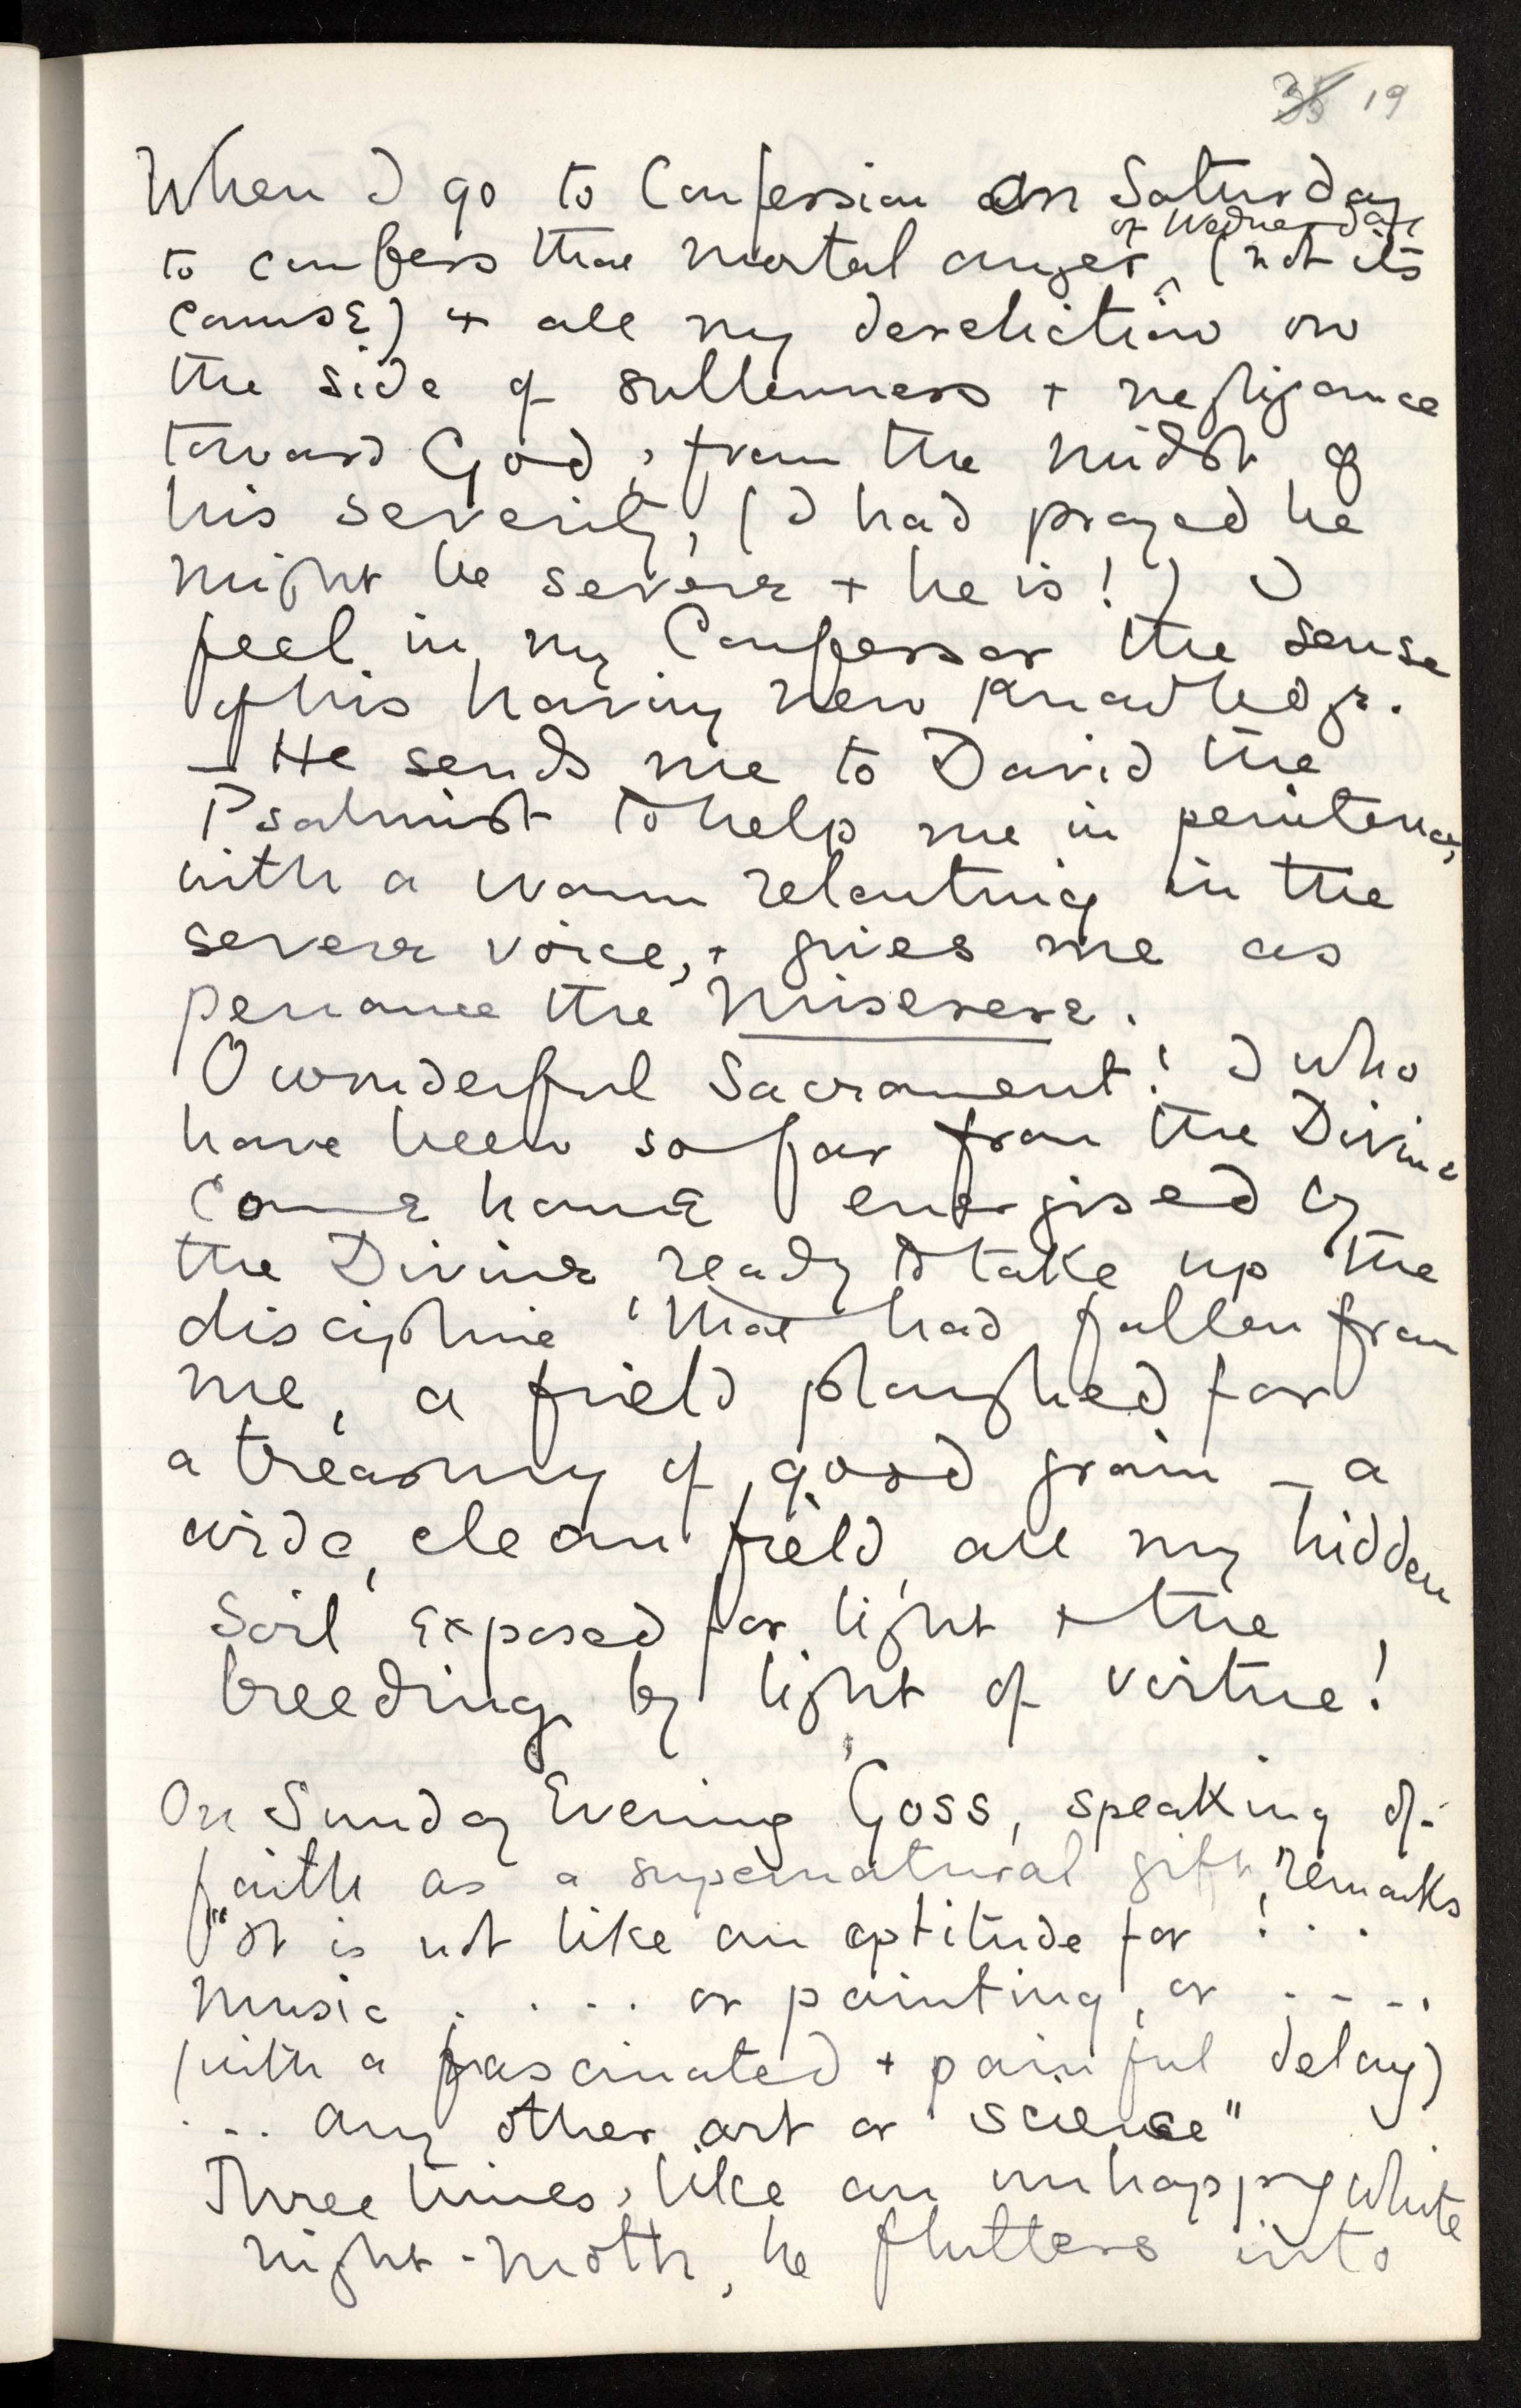 35 19
When I go to Confession on Saturday
of Wednesday
to confess that mortal anger ^ (not its
cause) + all my dereliction on
the side of sullenness + negligence
toward God, from the midst of
his severity, (I had prayed he
might be severe + he is!) I
feel in my Confessor the sense
of his having new knowledge.
— He sends me to David the
Psalmist to help me in penitence,
with a warm relenting in the
severe voice, + gives me as
penance the Miserere.
O wonderful Sacrament! I who
have been so far from the Divine
come home energised by
the Divine, ready to take up the
discipline that had fallen from
me, a field ploughed for
a treasury of good grain — a
wide, clean field, all my hidden
soil exposed for light + the
breeding by light of virtue!
On Sunday Evening Goss, speaking of
faith as a supernatural gift, remarks
"It is not like an aptitude for ! . .
music . . . . or painting, or . . . .
(with a fascinated + painful delay)
. . any other art or science"
Three times, like an unhappy white
night-moth, he flutters into